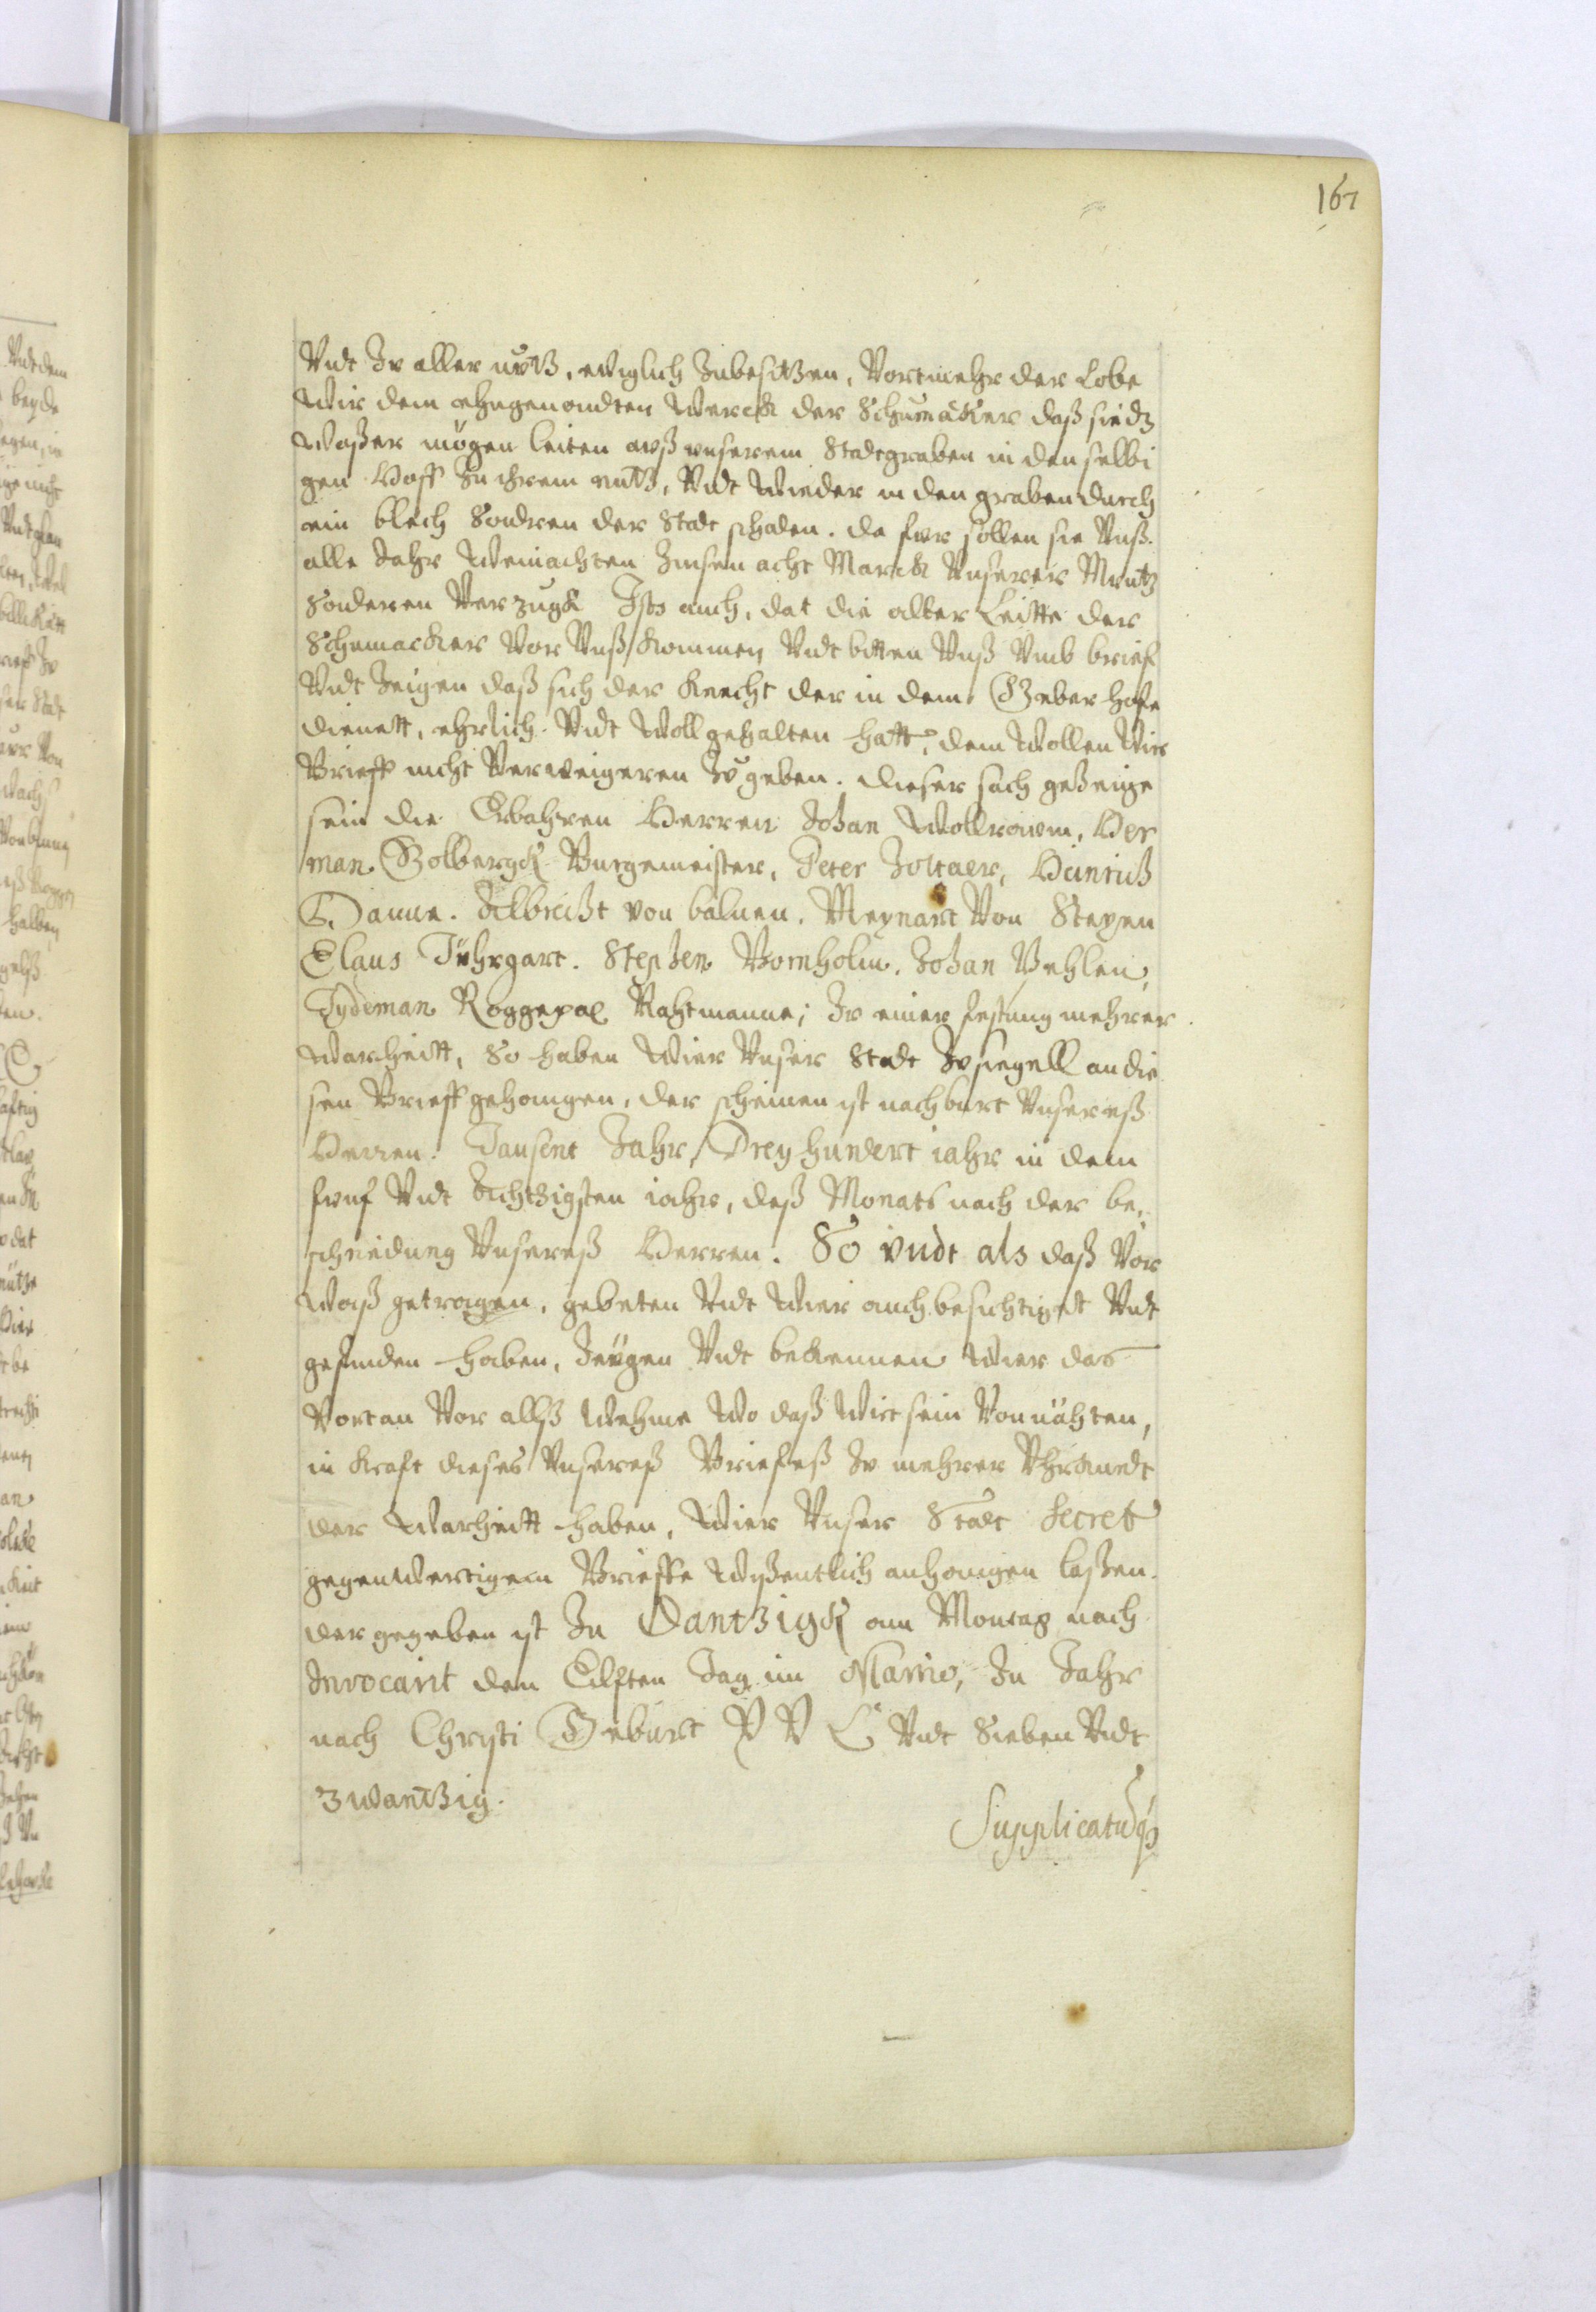 167
Vndt Zv aller nutz, ewiglich Zubesitzen, Vortmehr der Lobe
Wir dem ehegenandten Werck der Schumacker daß sie dz
Waßer mögen leiten auß vnserem Stadtgraben in den selbi
gen Hoff Zu ihrem nutz, Vndt Wieder in den graben durch
ein blech Sondren der Stadt schaden. da fver sollen sie Vnß
alle Jahr Weinachten Zinsen acht Marck Vnserer Müntz
Sonderen Verzugk Ists auch, dat die alter Leitte der
Schumacker Vor Vnß Kommen Vndt bitten Vnß Vmb brief
Vndt Zeigen daß sich der Knecht der in dem Gerber hofe
dienett, ehrlich Vndt Woll gehalten hatt, dem Wollen Wir
Brieff nicht Verweigeren Zv geben. dieser sach geZeige
sein die Erbahren Herren Johan Wollrowem, Her
man Golbergk Burgemeister, Peter Joltaer, Heinrich
Damme. Albrecht von balnen. Meynart Von Steyen
Claus Tührgart. Stephen Bornholm. Johan Vehlen,
Tydeman Roggepal Rahtmanne; Zv einer festung mehrer
Warheitt, So haben Wier Vnser Stadt Zv siegell an die
sen Brieff gehangen, der scheinen ist nach burt Vnsereß
Herren. Tausent Jahr, Drey hundert iahr in dem
fvnf Vndt Achtzigsten iahr, deß Monats nach der be,
schneidung Vnsereß Herren. So vndt als daß Vor
Waß getragen, gebeten Vndt Wier auch besichtiget Vndt
gefunden haben, Zeügen Vndt bekennen Wier das
Vortan Vor allß Wehme Wo daß Wirt sein Von nöhten,
in Kraft dieses Vnsereß Briefeß Zv mehrer Vhrkundt
der Warheitt haben, Wier Vnser Stadt Secrett
gegenwertigem Brieffe Wißentlich anhangen laßen.
der gegeben ist Zu Dantzigk am Montag nach
Invocavit den Eilften Tag im Martio, Zu Jahr
nach Christi Geburt V V C Vndt Sieben Vndt
Zwantzig.
Supplicatu